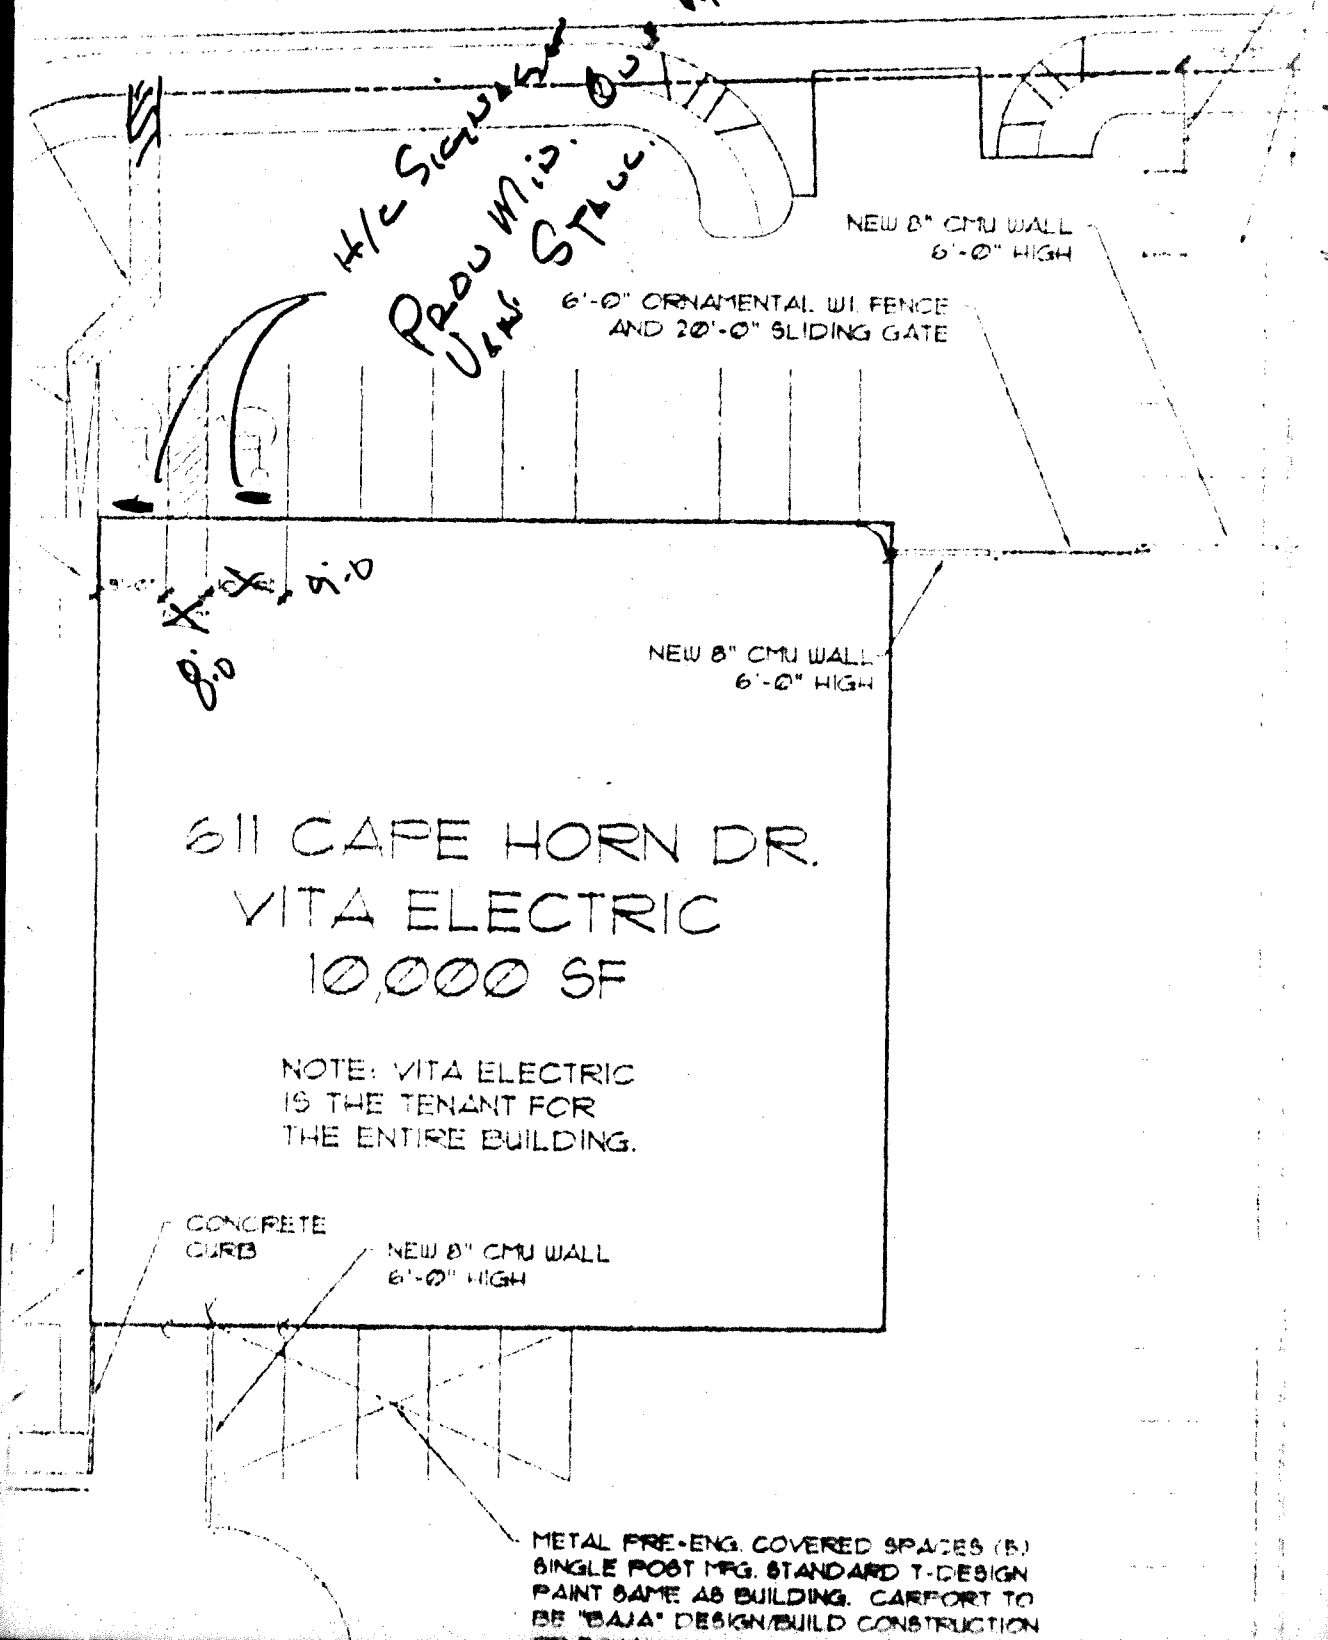 H/C SIGNAGE
PROV MIN. ①
VAN STALL.
NEW 8" CMU WALL
6'-0" HIGH
6'-0" ORNAMENTAL W.I. FENCE
AND 20'-0" SLIDING GATE
9'-0"
9'.0
8'.0
NEW 8" CMU WALL
6'-0" HIGH
611 CAPE HORN DR.
VITA ELECTRIC
10,000 SF
NOTE: VITA ELECTRIC
IS THE TENANT FOR
THE ENTIRE BUILDING.
CONCRETE
CURB
NEW 8" CMU WALL
6'-0" HIGH
METAL PRE-ENG. COVERED SPACES (5)
SINGLE POST MFG. STANDARD T-DESIGN
PAINT SAME AS BUILDING. CARPORT TO
BE "BAJA" DESIGN/BUILD CONSTRUCTION